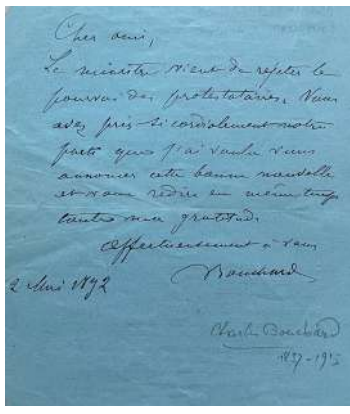 Cher ami,
Le ministre vient de rejeter le
pourvoi des protestataires. Vous
avez pris si cordialement notre
parti que j'ai voulu vous
annoncer cette bonne nouvelle
et vous redire en même temps
toute ma gratitude
affectueusement à vous
Bouchard
2 Mai 1892
Charles Bouchard
1837-1915